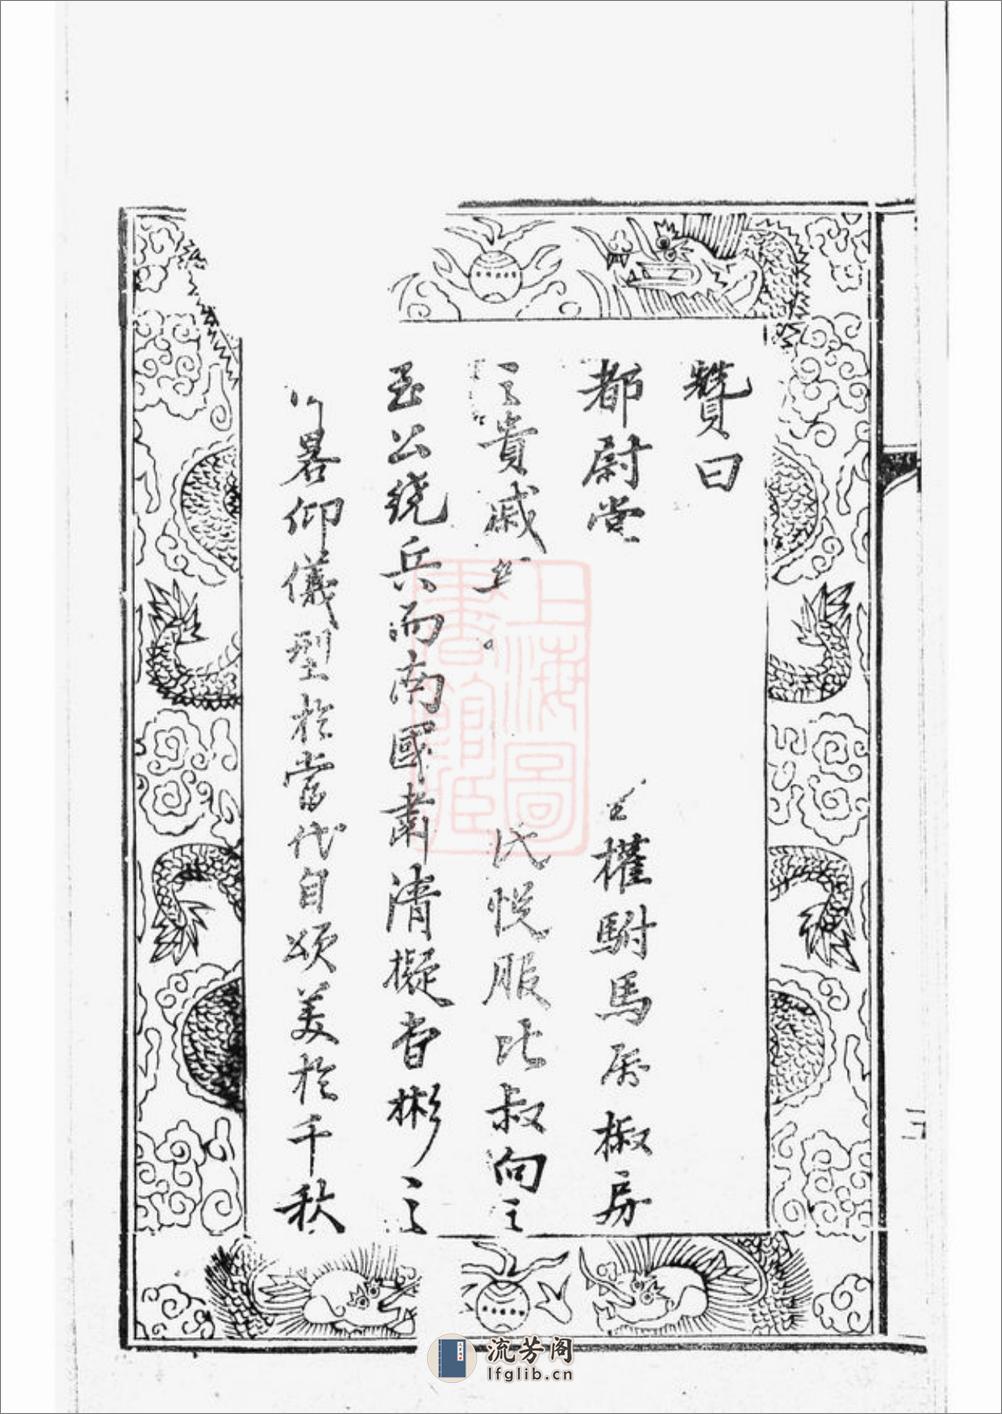 贊曰
都尉當 權駙馬居椒房
之貴戚 民悅服比叔向之
玉公繞兵而南國肅清擬曹彬之
畧仰儀型於當代自頌美於千秋
上海圖書館藏
流芳阁
lfglib.cn